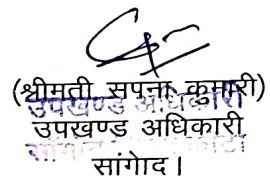 (श्रीमती सपना कुमारी)
उपखण्ड अधिकारी
उपखण्ड अधिकारी
सांगोद।